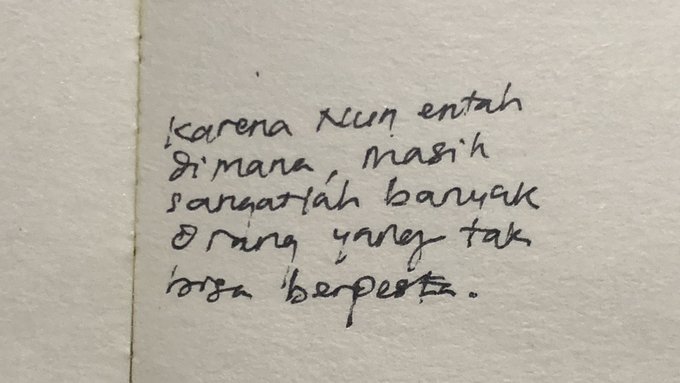 Karena Nun entah
dimana, masih
sangatlah banyak
orang yang tak
bisa berpesta.